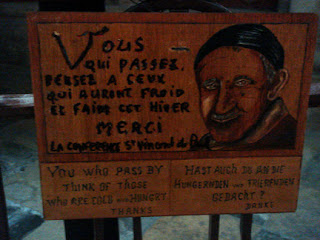 Vous
qui passez,
pensez à ceux
qui auront froid
et faim cet hiver
MERCI
La conférence St Vincent de Paul
You who pass by
think of those
who are cold and hungry
thanks
Hast auch du an die
hungernden und frierenden
gedacht?
Danke